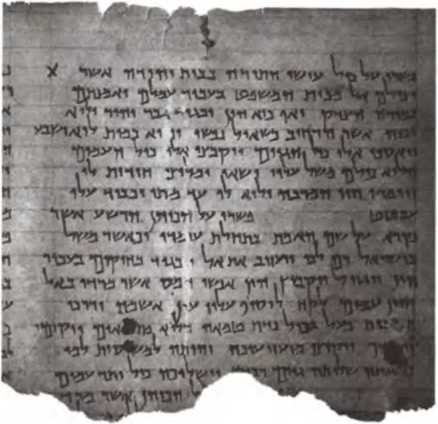 פשרו על כול עושי התורה בבית יהודה אשר
יצילם אל מבית המשפט בעבור עמלם ואמנתם
במורה הצדק ואף כיא הון יבגוד גבר יהיר ולוא
אשר הרחיב כשאול נפשו והוא כמות לוא ישבע
ויאספו אלו כול הגוים ויקבצו אלו כול העמים
הלוא כולם משל עליו ישאו ומליצי חידות לו
ויומרו הוי המרבה ולוא לו עד מתי יכביד עלו
עבטט פשרו על הכוהן הרשע אשר
נקרא על שם האמת בתחלת עומדו וכאשר משל
בישראל רם לבו ויעזוב את אל ויבגוד בחוקים בעבור
הון ויגזול ויקבוץ הון אנשי חמס אשר מרדו באל
והון עמים לקח לוסיף עליו עון אשמה ודרכי
פעל בכול נדת טמאה הלוא ויקומו
ויקיצו מזעזיעיכה והייתה למשיסות למו
אתה שלותה גוים רבים וישלוכה כול יתר עמים
הכוהן אשר מרד